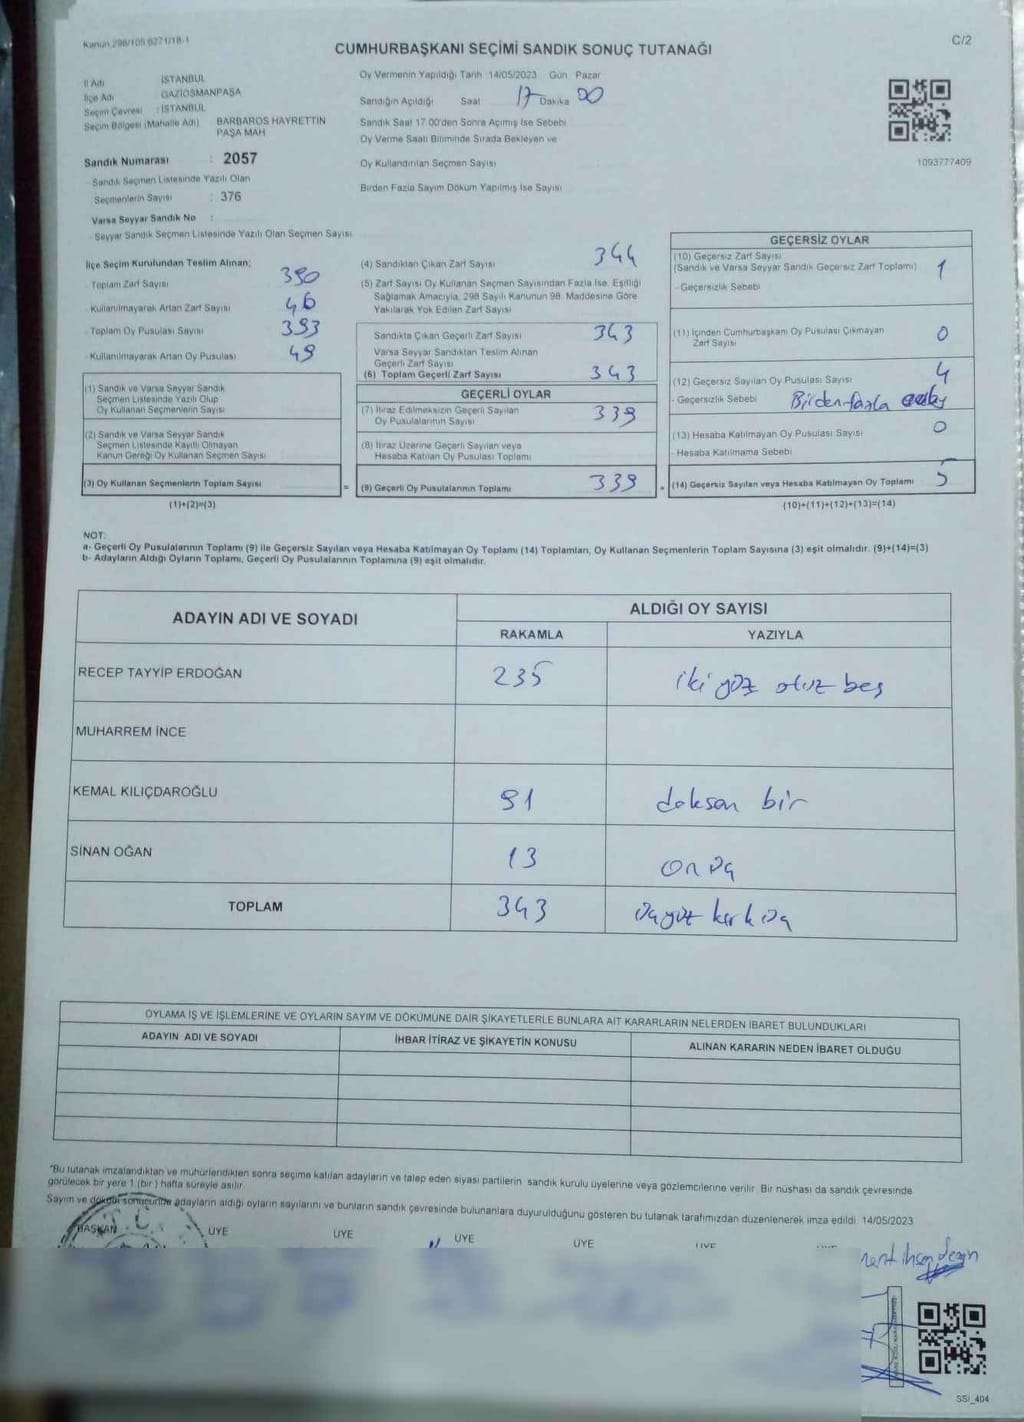 Kanun 298/105 6271/18-1
C/2
CUMHURBAŞKANI SEÇİMİ SANDIK SONUÇ TUTANAĞI
İl Adı : İSTANBUL
İlçe Adı : GAZİOSMANPAŞA
Seçim Çevresi : İSTANBUL
Seçim Bölgesi (Mahalle Adı) BARBAROS HAYRETTİN
PAŞA MAH
Sandık Numarası : 2057
- Sandık Seçmen Listesinde Yazılı Olan
Seçmenlerin Sayısı : 376
Varsa Seyyar Sandık No :
- Seyyar Sandık Seçmen Listesinde Yazılı Olan Seçmen Sayısı
Oy Vermenin Yapıldığı Tarih 14/05/2023 Gün Pazar
Sandığın Açıldığı Saat 17 Dakika 00
Sandık Saat 17.00'den Sonra Açılmış İse Sebebi
Oy Verme Saati Bitiminde Sırada Bekleyen ve
Oy Kullandırılan Seçmen Sayısı
Birden Fazla Sayım Döküm Yapılmış İse Sayısı
1093777409
İlçe Seçim Kurulundan Teslim Alınan;
- Toplam Zarf Sayısı 390
- Kullanılmayarak Artan Zarf Sayısı 46
- Toplam Oy Pusulası Sayısı 393
- Kullanılmayarak Artan Oy Pusulası 49
(1) Sandık ve Varsa Seyyar Sandık
Seçmen Listesinde Yazılı Olup
Oy Kullanan Seçmenlerin Sayısı
(2) Sandık ve Varsa Seyyar Sandık
Seçmen Listesinde Kayıtlı Olmayan
Kanun Gereği Oy Kullanan Seçmen Sayısı
(3) Oy Kullanan Seçmenlerin Toplam Sayısı
(1)+(2)=(3)
(4) Sandıktan Çıkan Zarf Sayısı 344
(5) Zarf Sayısı Oy Kullanan Seçmen Sayısından Fazla İse, Eşitliği
Sağlamak Amacıyla, 298 Sayılı Kanunun 98. Maddesine Göre
Yakılarak Yok Edilen Zarf Sayısı
Sandıkta Çıkan Geçerli Zarf Sayısı 343
Varsa Seyyar Sandıktan Teslim Alınan
Geçerli Zarf Sayısı
(6) Toplam Geçerli Zarf Sayısı 343
GEÇERLİ OYLAR
(7) İtiraz Edilmeksizin Geçerli Sayılan
Oy Pusulalarının Sayısı 339
(8) İtiraz Üzerine Geçerli Sayılan veya
Hesaba Katılan Oy Pusulası Toplamı
= (9) Geçerli Oy Pusulalarının Toplamı 339
GEÇERSİZ OYLAR
(10) Geçersiz Zarf Sayısı
(Sandık ve Varsa Seyyar Sandık Geçersiz Zarf Toplamı) 1
- Geçersizlik Sebebi
(11) İçinden Cumhurbaşkanı Oy Pusulası Çıkmayan
Zarf Sayısı 0
(12) Geçersiz Sayılan Oy Pusulası Sayısı 4
- Geçersizlik Sebebi Birden fazla
(13) Hesaba Katılmayan Oy Pusulası Sayısı 0
- Hesaba Katılmama Sebebi
+ (14) Geçersiz Sayılan veya Hesaba Katılmayan Oy Toplamı 5
(10)+(11)+(12)+(13)=(14)
NOT:
a- Geçerli Oy Pusulalarının Toplamı (9) ile Geçersiz Sayılan veya Hesaba Katılmayan Oy Toplamı (14) Toplamları, Oy Kullanan Seçmenlerin Toplam Sayısına (3) eşit olmalıdır. (9)+(14)=(3)
b- Adayların Aldığı Oyların Toplamı, Geçerli Oy Pusulalarının Toplamına (9) eşit olmalıdır.
ADAYIN ADI VE SOYADI
ALDIĞI OY SAYISI
RAKAMLA YAZIYLA
RECEP TAYYİP ERDOĞAN 235 iki yüz otuz beş
MUHARREM İNCE
KEMAL KILIÇDAROĞLU 91 doksan bir
SİNAN OĞAN 13 on üç
TOPLAM 343 üçyüz kırk üç
OYLAMA İŞ VE İŞLEMLERİNE VE OYLARIN SAYIM VE DÖKÜMÜNE DAİR ŞİKAYETLERLE BUNLARA AİT KARARLARIN NELERDEN İBARET BULUNDUKLARI
ADAYIN ADI VE SOYADI İHBAR İTİRAZ VE ŞİKAYETİN KONUSU ALINAN KARARIN NEDEN İBARET OLDUĞU
"Bu tutanak imzalandıktan ve mühürlendikten sonra seçime katılan adayların ve talep eden siyasi partilerin sandık kurulu üyelerine veya gözlemcilerine verilir. Bir nüshası da sandık çevresinde
görülecek bir yere 1 (bir) hafta süreyle asılır.
Sayım ve döküm sonucunda adayların aldığı oyların sayılarını ve bunların sandık çevresinde bulunanlara duyurulduğunu gösteren bu tutanak tarafımızdan düzenlenerek imza edildi. 14/05/2023
T.C.
BAŞKAN ÜYE ÜYE ÜYE ÜYE
SSİ_404